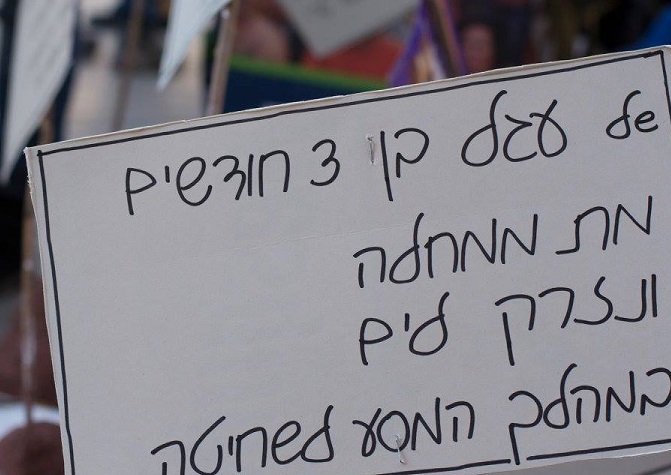 של עגל בן 3 חודשים
מת ממחלה
ונזרק לים
במהלך המסע לשחיטה